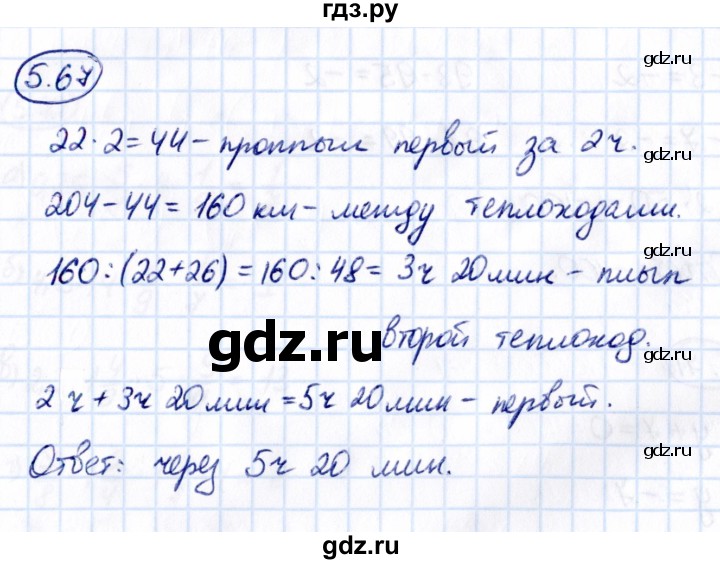 гдз.ру
gdz.ru
5.67
22·2=44 – проплыл первый за 2ч.
204-44=160км – между теплоходами.
gdz.ru
160:(22+26)=160:48= 3ч 20мин – плыл
gdz.ru
второй теплоход.
gdz.ru
2ч+3ч 20мин=5ч 20мин – первый.
Ответ: через 5ч 20 мин.
gdz.ru
gdz.ru